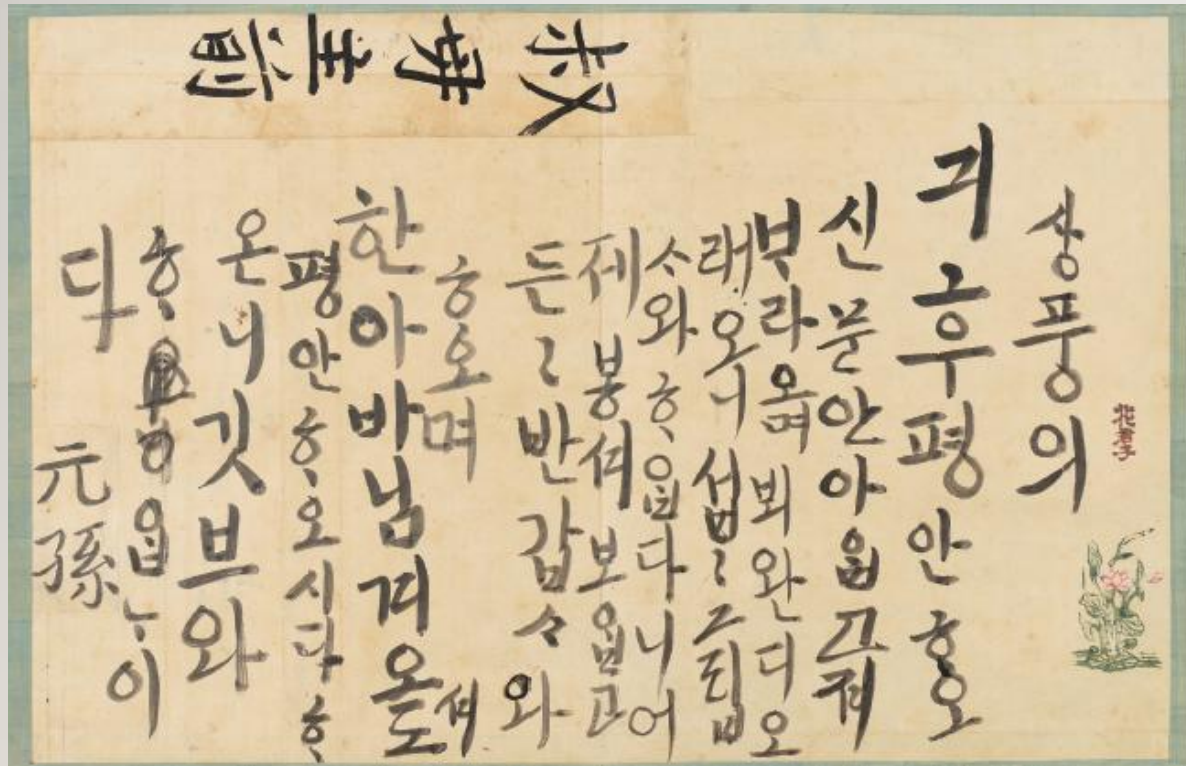 叔母主前
花君子
상풍의
긔후평안ᄒᆞ오
신문안아ᄋᆞᆸ고져
ᄇᆞ라오며뵈완디오
래오니섭〻그립
ᄉᆞ와ᄒᆞᄋᆞᆸ다니어
제봉셔보ᄋᆞᆸ고
든〻반갑ᄉᆞ와
ᄒᆞ오며
한아바님겨오셔도
평안ᄒᆞ오시다ᄒᆞ
온니깃브와
ᄒᆞᄋᆞᆸᄂᆞ이
다
元孫